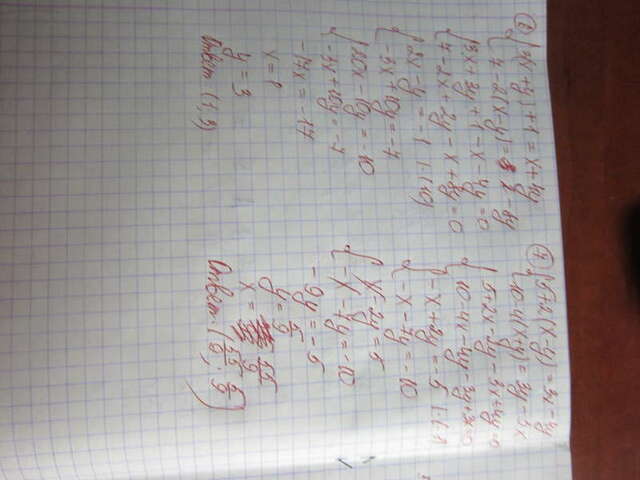 ⑥ { 3(x+y)+1=x+4y
7-2(x-y)=x-8y
{ 3x+3y+1-x-4y=0
7-2x+2y-x+8y=0
{ 2x-y=-1 |·(10)
-3x+10y=-7
{ 20x-10y=-10
-3x+10y=-7
-17x=-17
x=1
y=3
Ответ (1,3)
④ { 5+2(x-y)=3x-4y
10-4(x+y)=3y-3x
{ 5+2x-2y-3x+4y=0
10-4x-4y-3y+3x=0
{ -x+2y=-5 |·(-1)
-x-7y=-10
{ x-2y=5
-x-7y=-10
-9y=-5
y=5/9
x=55/9
Ответ: (55/9; 5/9)